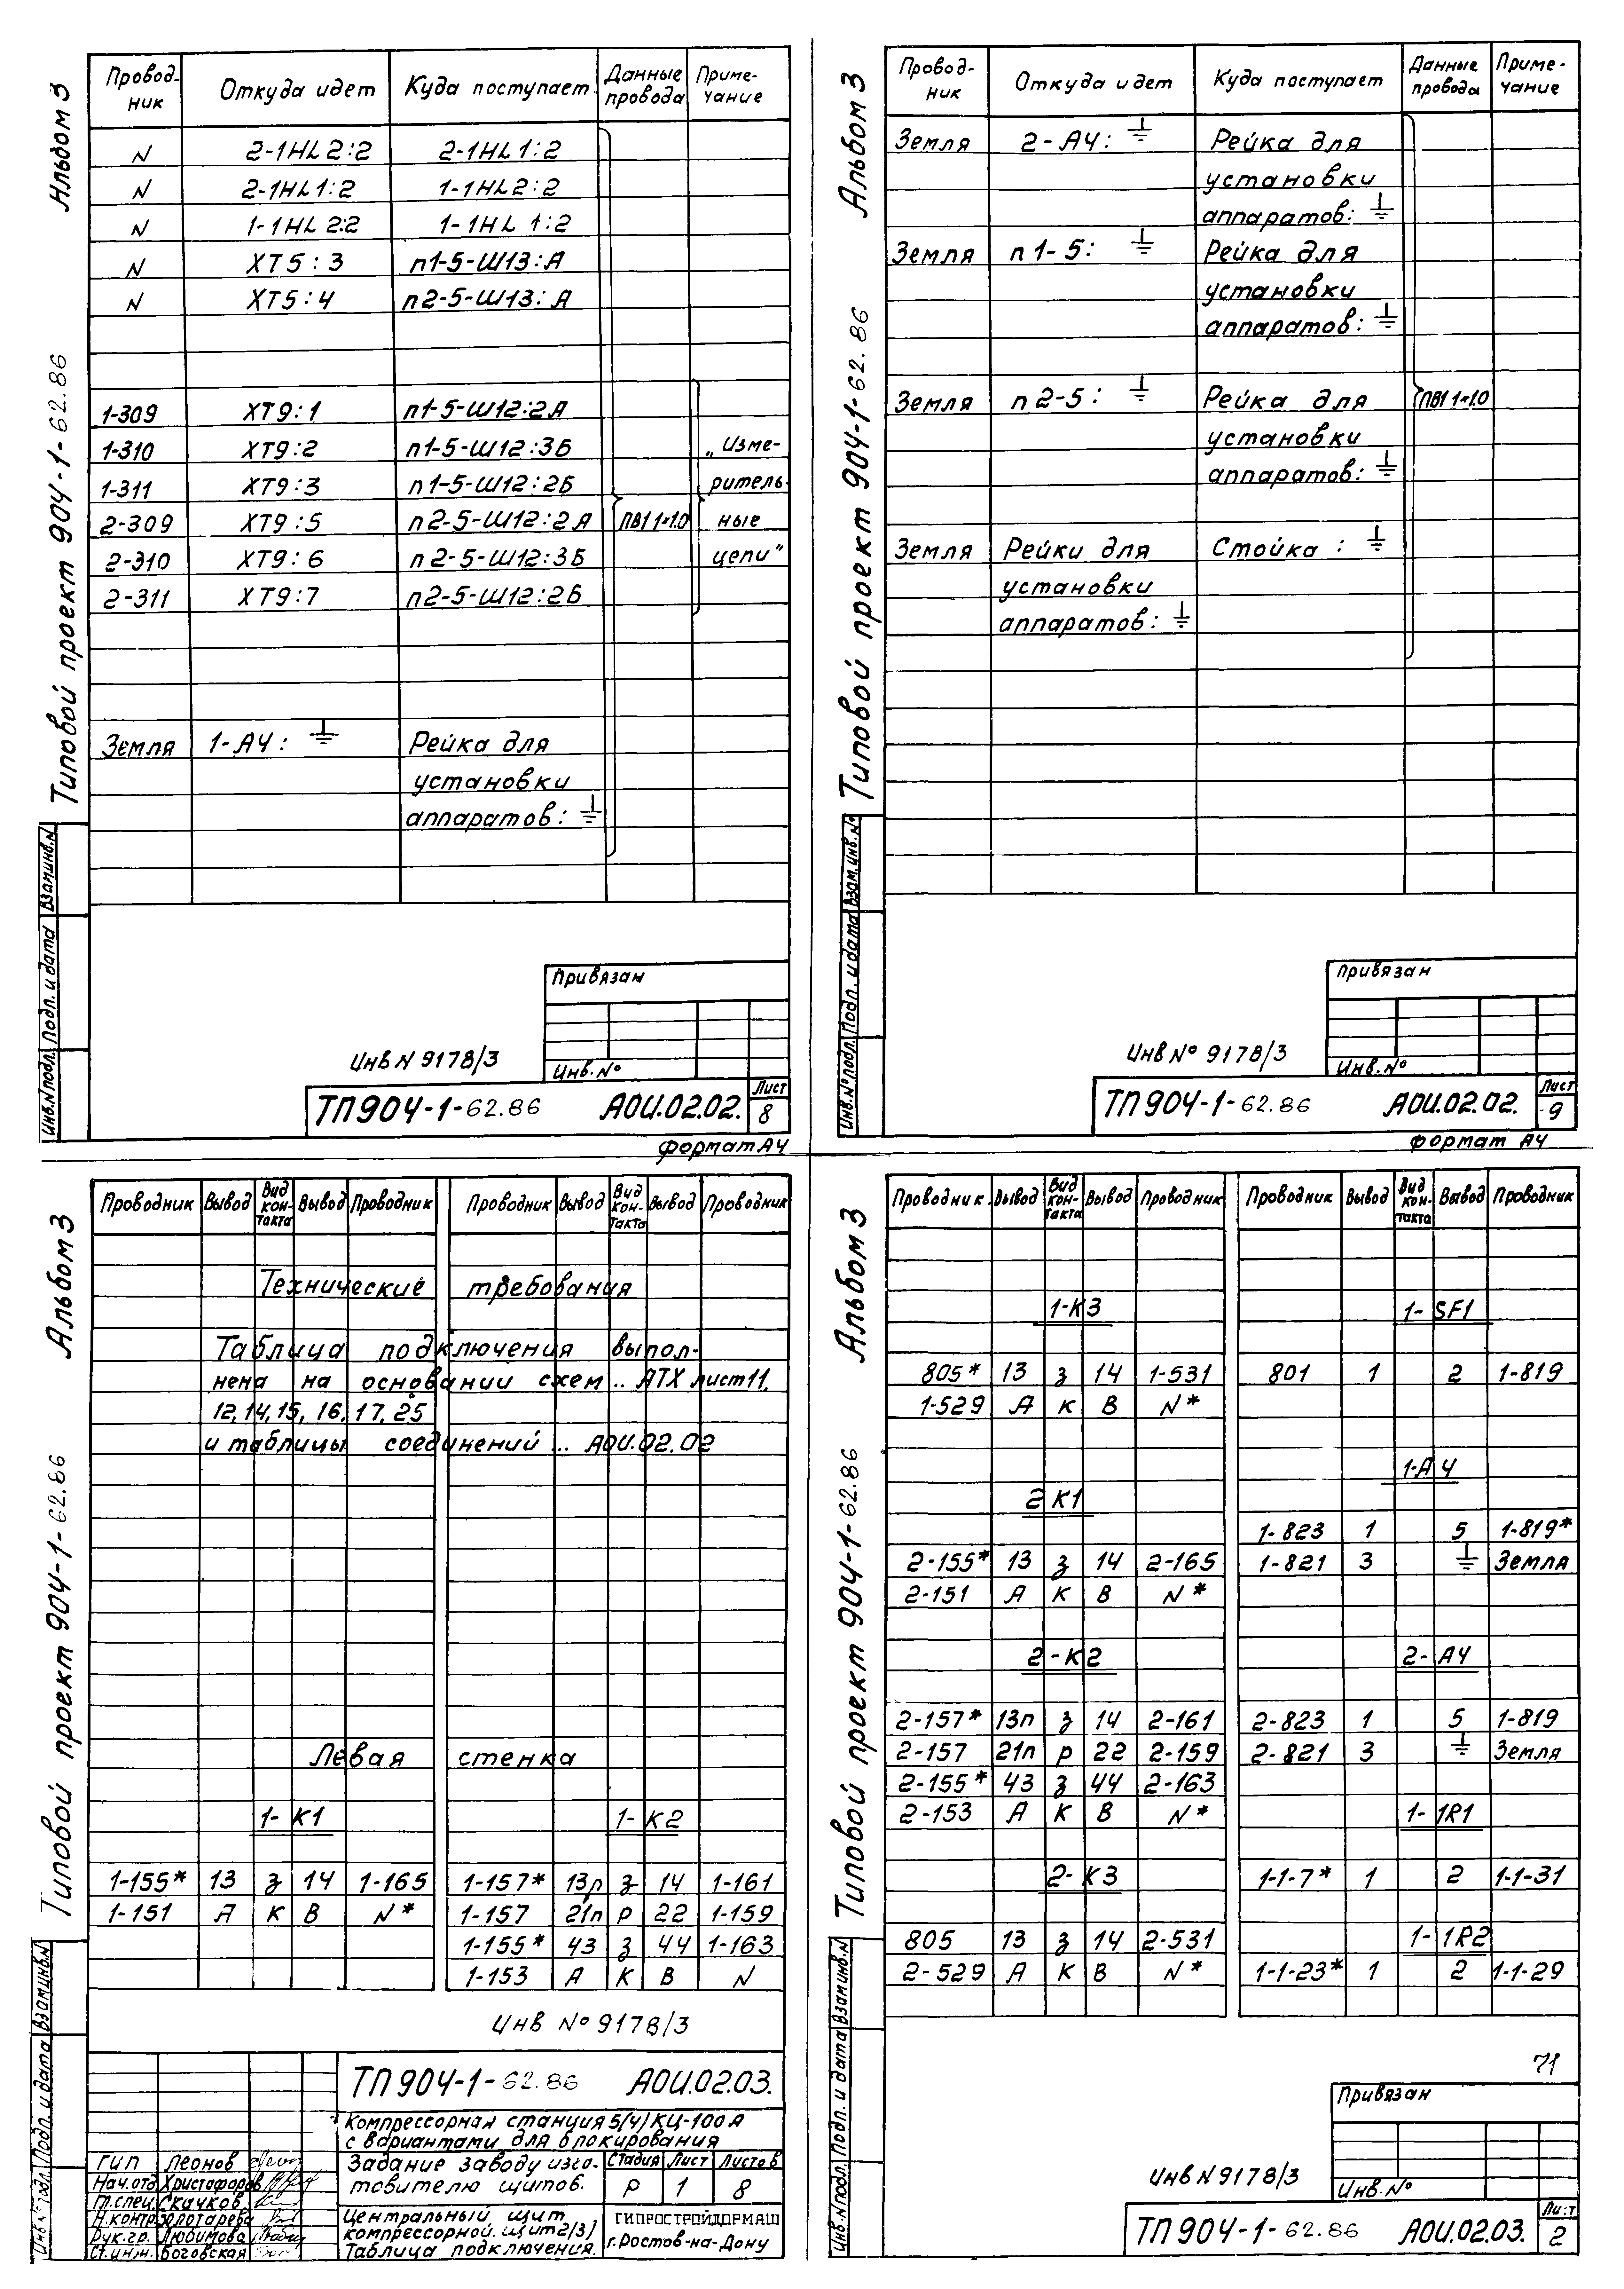 Альбом 3
Типовой проект 904-1-62.86
Провод-ник Откуда идет Куда поступает Данные провода Приме-чание
N 2-1HL2:2 2-1HL1:2
N 2-1HL1:2 1-1HL2:2
N 1-1HL2:2 1-1HL1:2
N XT5:3 п1-5-Ш13:А
N XT5:4 п2-5-Ш13:А
1-309 XT9:1 п1-5-Ш12:2А
1-310 XT9:2 п1-5-Ш12:3Б „Изме-
1-311 XT9:3 п1-5-Ш12:2Б ритель-
2-309 XT9:5 п2-5-Ш12:2А ПВ1 1×1.0 ные
2-310 XT9:6 п2-5-Ш12:3Б цепи"
2-311 XT9:7 п2-5-Ш12:2Б
Земля 1-А4: ⏚ Рейка для
установки
аппаратов: ⏚
Взам.инв.N
Подп. и дата
Инв.N подл.
Привязан
Инв.№
Инв N 9178/3
ТП904-1-62.86 АОИ.02.02. Лист 8
формат А4
Альбом 3
Типовой проект 904-1-62.86
Провод-ник Откуда идет Куда поступает Данные провода Приме-чание
Земля 2-А4: ⏚ Рейка для
установки
аппаратов: ⏚
Земля п1-5: ⏚ Рейка для
установки
аппаратов: ⏚
Земля п2-5: ⏚ Рейка для ПВ1 1×1.0
установки
аппаратов: ⏚
Земля Рейки для Стойка: ⏚
установки
аппаратов: ⏚
Взам.инв.№
Подп. и дата
Инв.№ подл.
Привязан
Инв.№
Инв № 9178/3
ТП904-1-62.86 АОИ.02.02. Лист 9
формат А4
Альбом 3
Типовой проект 904-1-62.86
Проводник Вывод Вид кон-такта Вывод Проводник Проводник Вывод Вид кон-такта Вывод Проводник
Технические требования
Таблица подключения выпол-
нена на основании схем... АТХ лист 11,
12, 14, 15, 16, 17, 25
и таблицы соединений ... АОИ.02.02
Левая стенка
1-К1 1-К2
1-155* 13 з 14 1-165 1-157* 13п з 14 1-161
1-151 А К В N* 1-157 21п р 22 1-159
1-155* 43 з 44 1-163
1-153 А К В N
Инв № 9178/3
Взам.инв.N
Подп. и дата
Инв.N подл.
ТП904-1-62.86 АОИ.02.03.
Компрессорная станция 5/4/КЦ-100А
с вариантами для блокирования
ГИП Леонов
Нач.отд Христофоров
Гл.спец. Скачков
Н.контр Золотарева
Рук.гр. Любимова
Ст.инж. Боговская
Задание заводу изго-
товителю щитов.
Стадия Лист Листов
Р 1 8
Центральный щит
компрессорной. Щит2/3/
Таблица подключения.
ГИПРОСТРОЙДОРМАШ
г.Ростов-на-Дону
Альбом 3
Типовой проект 904-1-62.86
Проводник Вывод Вид кон-такта Вывод Проводник Проводник Вывод Вид кон-такта Вывод Проводник
1-К3 1-SF1
805* 13 з 14 1-531 801 1 2 1-819
1-529 А К В N*
1-А4
2 К1
1-823 1 5 1-819*
2-155* 13 з 14 2-165 1-821 3 ⏚ Земля
2-151 А К В N*
2-К2 2-А4
2-157* 13п з 14 2-161 2-823 1 5 1-819
2-157 21п р 22 2-159 2-821 3 ⏚ Земля
2-155* 43 з 44 2-163
2-153 А К В N* 1-1R1
2-К3 1-1-7* 1 2 1-1-31
805 13 з 14 2-531 1-1R2
2-529 А К В N* 1-1-23* 1 2 1-1-29
71
Взам.инв.N
Подп. и дата
Инв.N подл.
Привязан
Инв.№
Инв N 9178/3
ТП904-1-62.86 АОИ.02.03. Лист 2